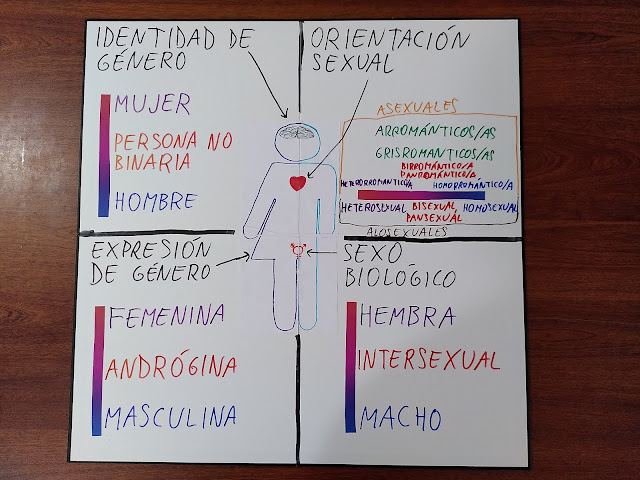 IDENTIDAD DE
GÉNERO
MUJER
PERSONA NO
BINARIA
HOMBRE
ORIENTACIÓN
SEXUAL
ASEXUALES
ARROMÁNTICOS/AS
GRISROMANTICOS/AS
BIRROMÁNTICO/A
PANROMÁNTICO/A
HETERORROMANTICO/A HOMORROMÁNTICO/A
HETEROSEXUAL BISEXUAL, HOMOSEXUAL
PANSEXUAL
ALOSEXUALES
EXPRESIÓN
DE GÉNERO
FEMENINA
ANDRÓGINA
MASCULINA
SEXO
BIOLÓGICO
HEMBRA
INTERSEXUAL
MACHO